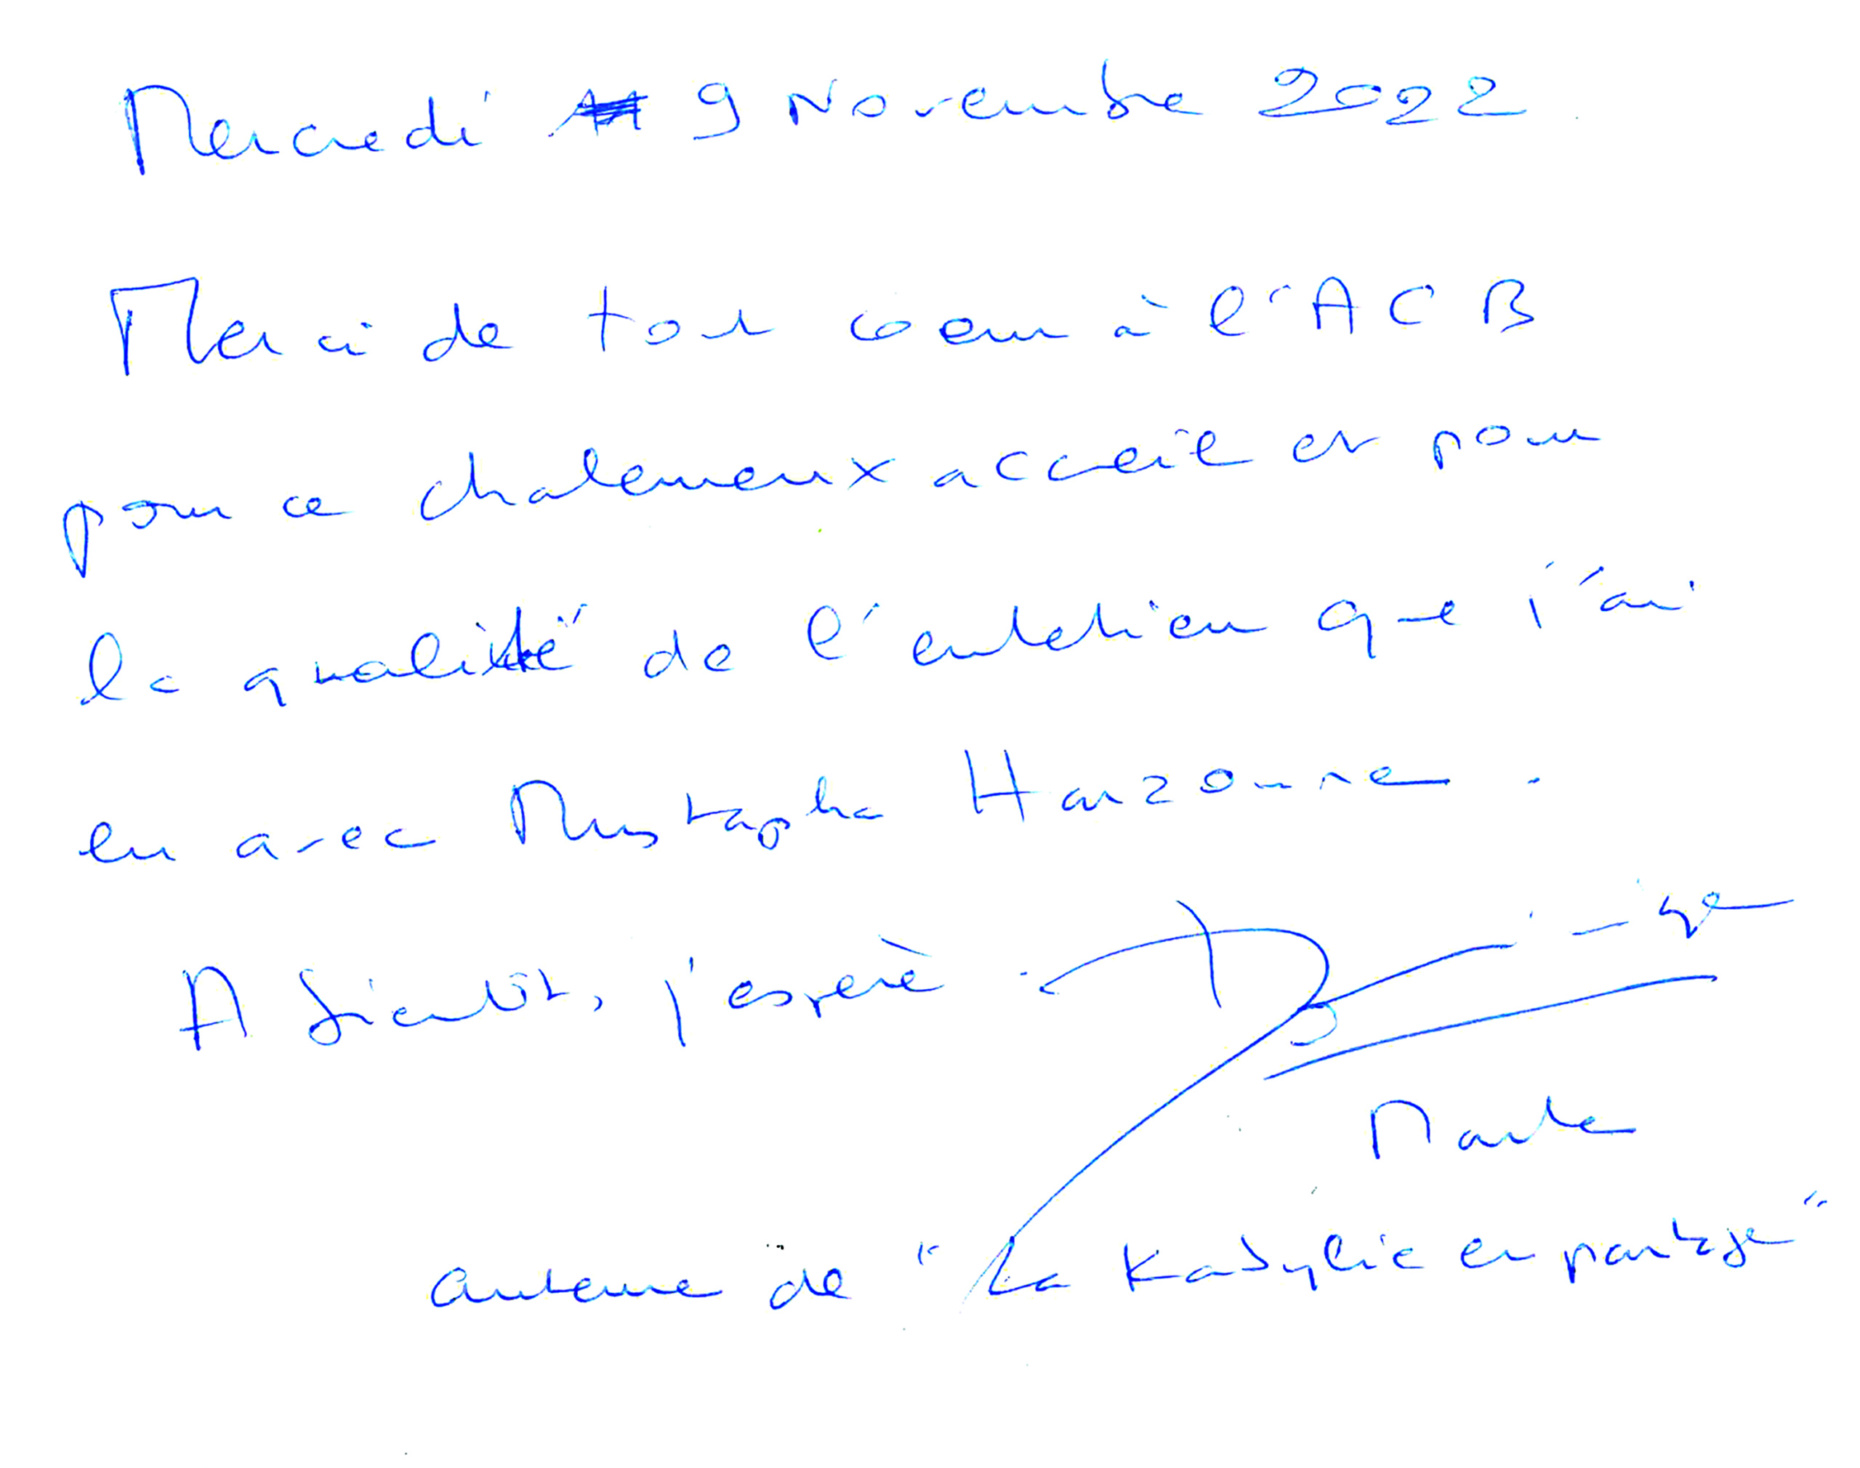 Mercredi 9 Novembre 2022
Merci de tout coeur à l'ACB
pour ce chaleureux accueil et pour
la qualité de l'entretien que j'ai
eu avec Mustapha Harzoune.
A bientôt, j'espère.
Dominique
Martre
auteure de "La Kabylie en partage"